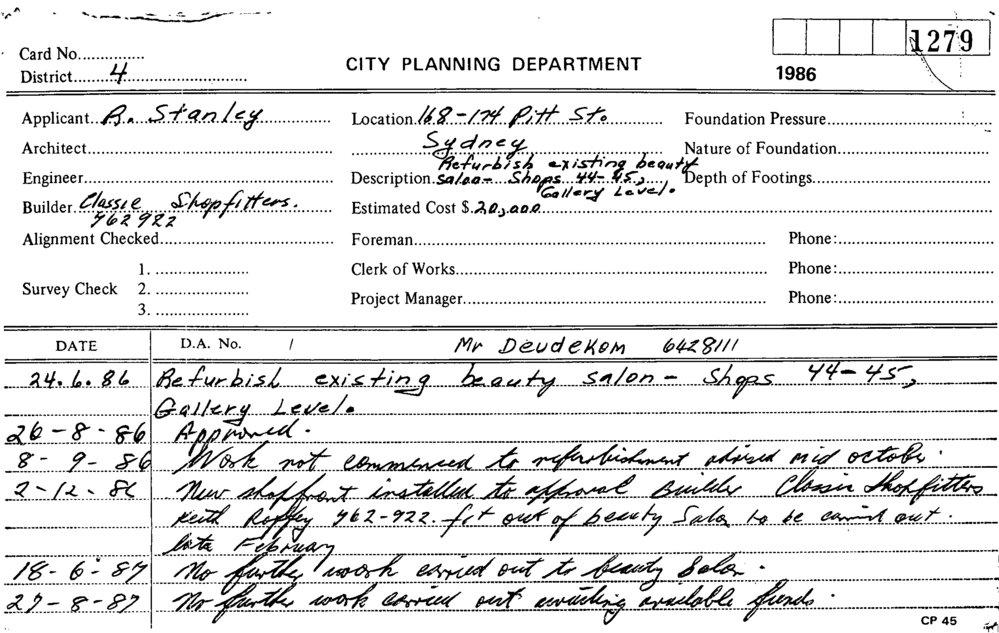 Card No..............
District........4
CITY PLANNING DEPARTMENT
1279
1986
Applicant..R. Stanley
Location.168-174 Pitt St.
Sydney
Foundation Pressure
Architect
Nature of Foundation
Engineer
Description.Refurbish existing beauty
salon- Shops 44-45,
Gallery Level.
Depth of Footings
Builder.Classic Shopfitters.
962922
Estimated Cost $.20,000
Alignment Checked
Foreman
Phone:
Survey Check 1.
2.
3.
Clerk of Works
Phone:
Project Manager
Phone:
DATE D.A. No. / Mr Deudekom 6428111
24.6.86 Refurbish existing beauty salon - Shops 44-45,
Gallery Level.
26-8-86 Approved.
8-9-86 Work not commenced to refurbishment advised mid october.
2-12-86 New shopfront installed to approval Builder Classic Shopfitters
Keith 962-922. fit out of beauty Salon to be carried out.
late February
18-6-87 No further work carried out to beauty Salon.
27-8-87 No further work carried out awaiting available funds.
CP 45